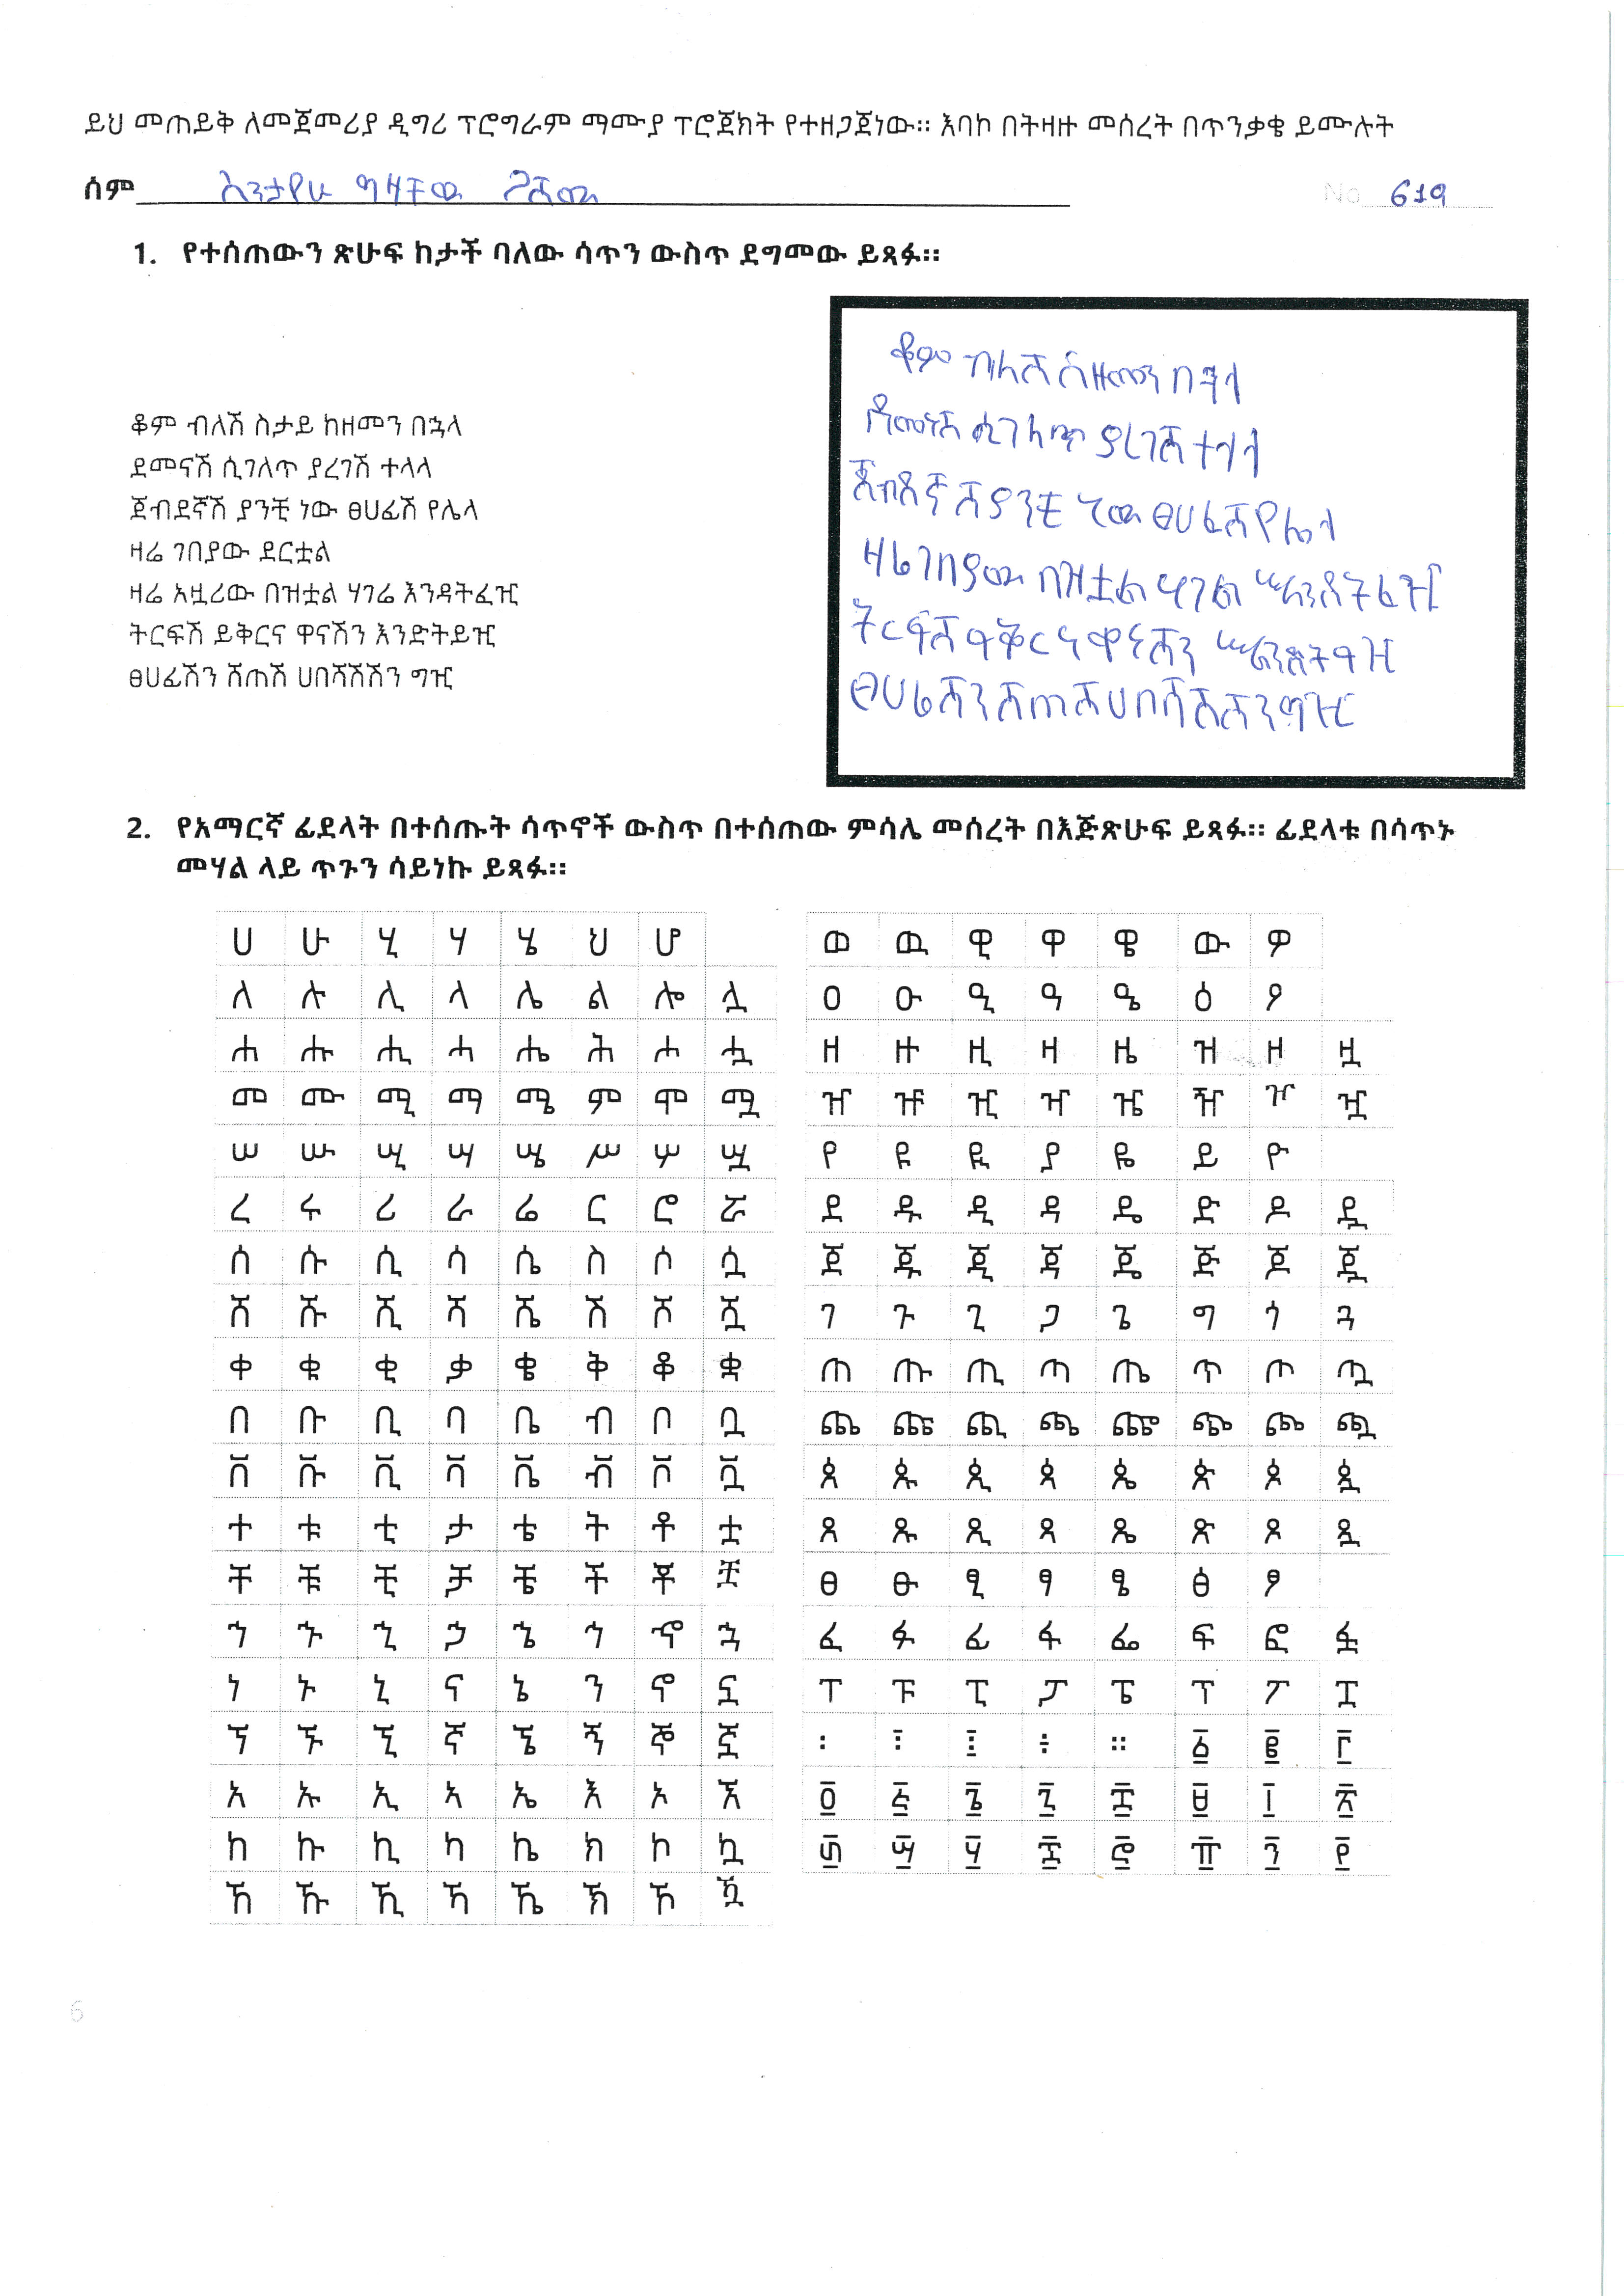 ይህ መጠይቅ ለመጀመሪያ ዲግሪ ፕሮግራም ማሙያ ፕሮጀክት የተዘጋጀነው። እባኮ በትዛዙ መሰረት በጥንቃቄ ይሙሉት
ስም እንታየሁ ግዛቸው ጋሻው No 619
1. የተሰጠውን ጽሁፍ ከታች ባለው ሳጥን ውስጥ ደግመው ይጻፉ።
ቆም ብለሽ ስታይ ከዘመን በኋላ
ደመናሽ ሲገለጥ ያረገሽ ተላላ
ጀብደኛሽ ያንቺ ነው ፀሀፊሽ የሌላ
ዛሬ ገበያው ደርቷል
ዛሬ አዟሪው በዝቷል ሃገሬ እንዳትፈዢ
ትርፍሽ ይቅርና ዋናሽን እንድትይዢ
ፀሀፊሽን ሽጠሽ ሀበሻሽሽን ግዢ
ቆም ብለሽ ስዘመን በኋላ
ደመነሽ ሲገለጥ ያረገሽ ተላላ
ጀብደኛሽ ያንቺ ነው ፀሀፊሽ የሌላ
ዛሬ ገበያው በዝቷል ሃገሬ እንዳትፈዢ
ትርፍሽ ይቅርና ዋናሽን እንድትይዢ
ፀሀፊሽን ሽጠሽ ሀበሻሽሽን ግዢ
2. የአማርኛ ፊደላት በተሰጡት ሳጥኖች ውስጥ በተሰጠው ምሳሌ መሰረት በእጅጽሁፍ ይጻፉ። ፊደላቱ በሳጥኑ
መሃል ላይ ጥጉን ሳይነኩ ይጻፉ።
ሀ ሁ ሂ ሃ ሄ ህ ሆ
ለ ሉ ሊ ላ ሌ ል ሎ ሏ
ሐ ሑ ሒ ሓ ሔ ሕ ሖ ሗ
መ ሙ ሚ ማ ሜ ም ሞ ሟ
ሠ ሡ ሢ ሣ ሤ ሥ ሦ ሧ
ረ ሩ ሪ ራ ሬ ር ሮ ሯ
ሰ ሱ ሲ ሳ ሴ ስ ሶ ሷ
ሸ ሹ ሺ ሻ ሼ ሽ ሾ ሿ
ቀ ቁ ቂ ቃ ቄ ቅ ቆ ቋ
በ ቡ ቢ ባ ቤ ብ ቦ ቧ
ቨ ቩ ቪ ቫ ቬ ቭ ቮ ቯ
ተ ቱ ቲ ታ ቴ ት ቶ ቷ
ቸ ቹ ቺ ቻ ቼ ች ቾ ቿ
ኀ ኁ ኂ ኃ ኄ ኅ ኆ ኋ
ነ ኑ ኒ ና ኔ ን ኖ ኗ
ኘ ኙ ኚ ኛ ኜ ኝ ኞ ኟ
አ ኡ ኢ ኣ ኤ እ ኦ ኧ
ከ ኩ ኪ ካ ኬ ክ ኮ ኳ
ኸ ኹ ኺ ኻ ኼ ኽ ኾ ዃ
ወ ዉ ዊ ዋ ዌ ው ዎ
ዐ ዑ ዒ ዓ ዔ ዕ ዖ
ዘ ዙ ዚ ዛ ዜ ዝ ዞ ዟ
ዠ ዡ ዢ ዣ ዤ ዥ ዦ ዧ
የ ዩ ዪ ያ ዬ ይ ዮ
ደ ዱ ዲ ዳ ዴ ድ ዶ ዷ
ጀ ጁ ጂ ጃ ጄ ጅ ጆ ጇ
ገ ጉ ጊ ጋ ጌ ግ ጎ ጓ
ጠ ጡ ጢ ጣ ጤ ጥ ጦ ጧ
ጨ ጩ ጪ ጫ ጬ ጭ ጮ ጯ
ጰ ጱ ጲ ጳ ጴ ጵ ጶ ጷ
ጸ ጹ ጺ ጻ ጼ ጽ ጾ ጿ
ፀ ፁ ፂ ፃ ፄ ፅ ፆ
ፈ ፉ ፊ ፋ ፌ ፍ ፎ ፏ
ፐ ፑ ፒ ፓ ፔ ፕ ፖ ፗ
፡ ፧ ፤ ÷ ። ፩ ፪ ፫
፬ ፭ ፮ ፯ ፰ ፱ ፲ ፳
፴ ፵ ፶ ፷ ፸ ፹ ፺ ፻
6